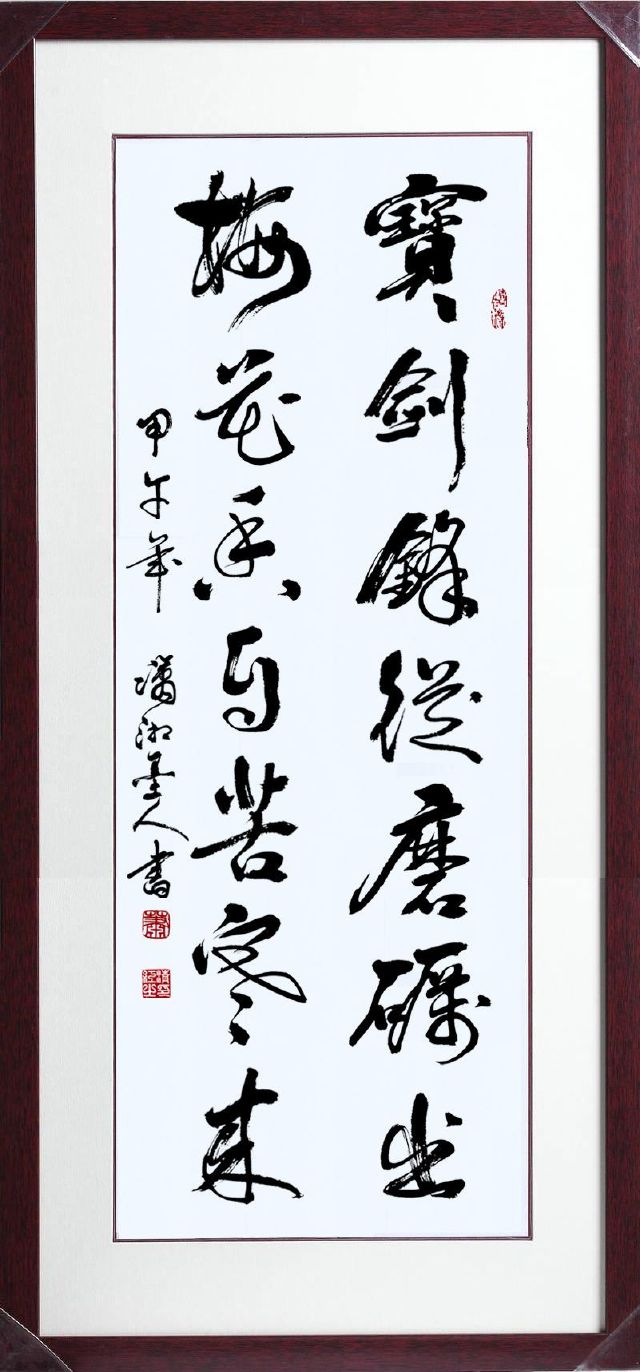 寶劍鋒從磨礪出
梅花香自苦寒來
甲午年 瀟湘墨人書